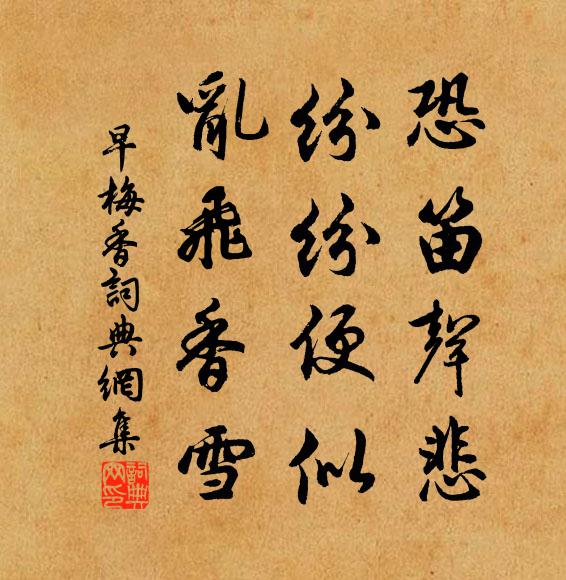 恐笛聲悲
紛紛便似
亂飛香雪
早梅香詞典網集
詞典
网印